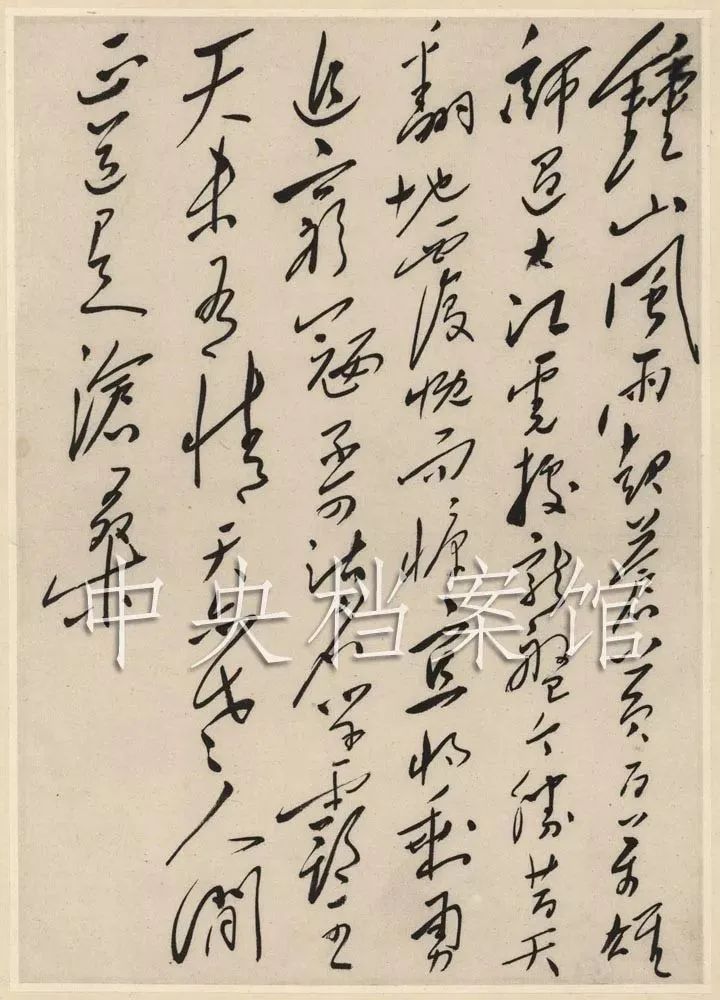 鍾山風雨起蒼黄百萬雄
師過大江虎據龍盤今勝昔天
翻地覆慨而慷宜將剩勇
追窮寇不可沽名學霸王
天若有情天亦老人間
正道是滄桑
中央档案馆